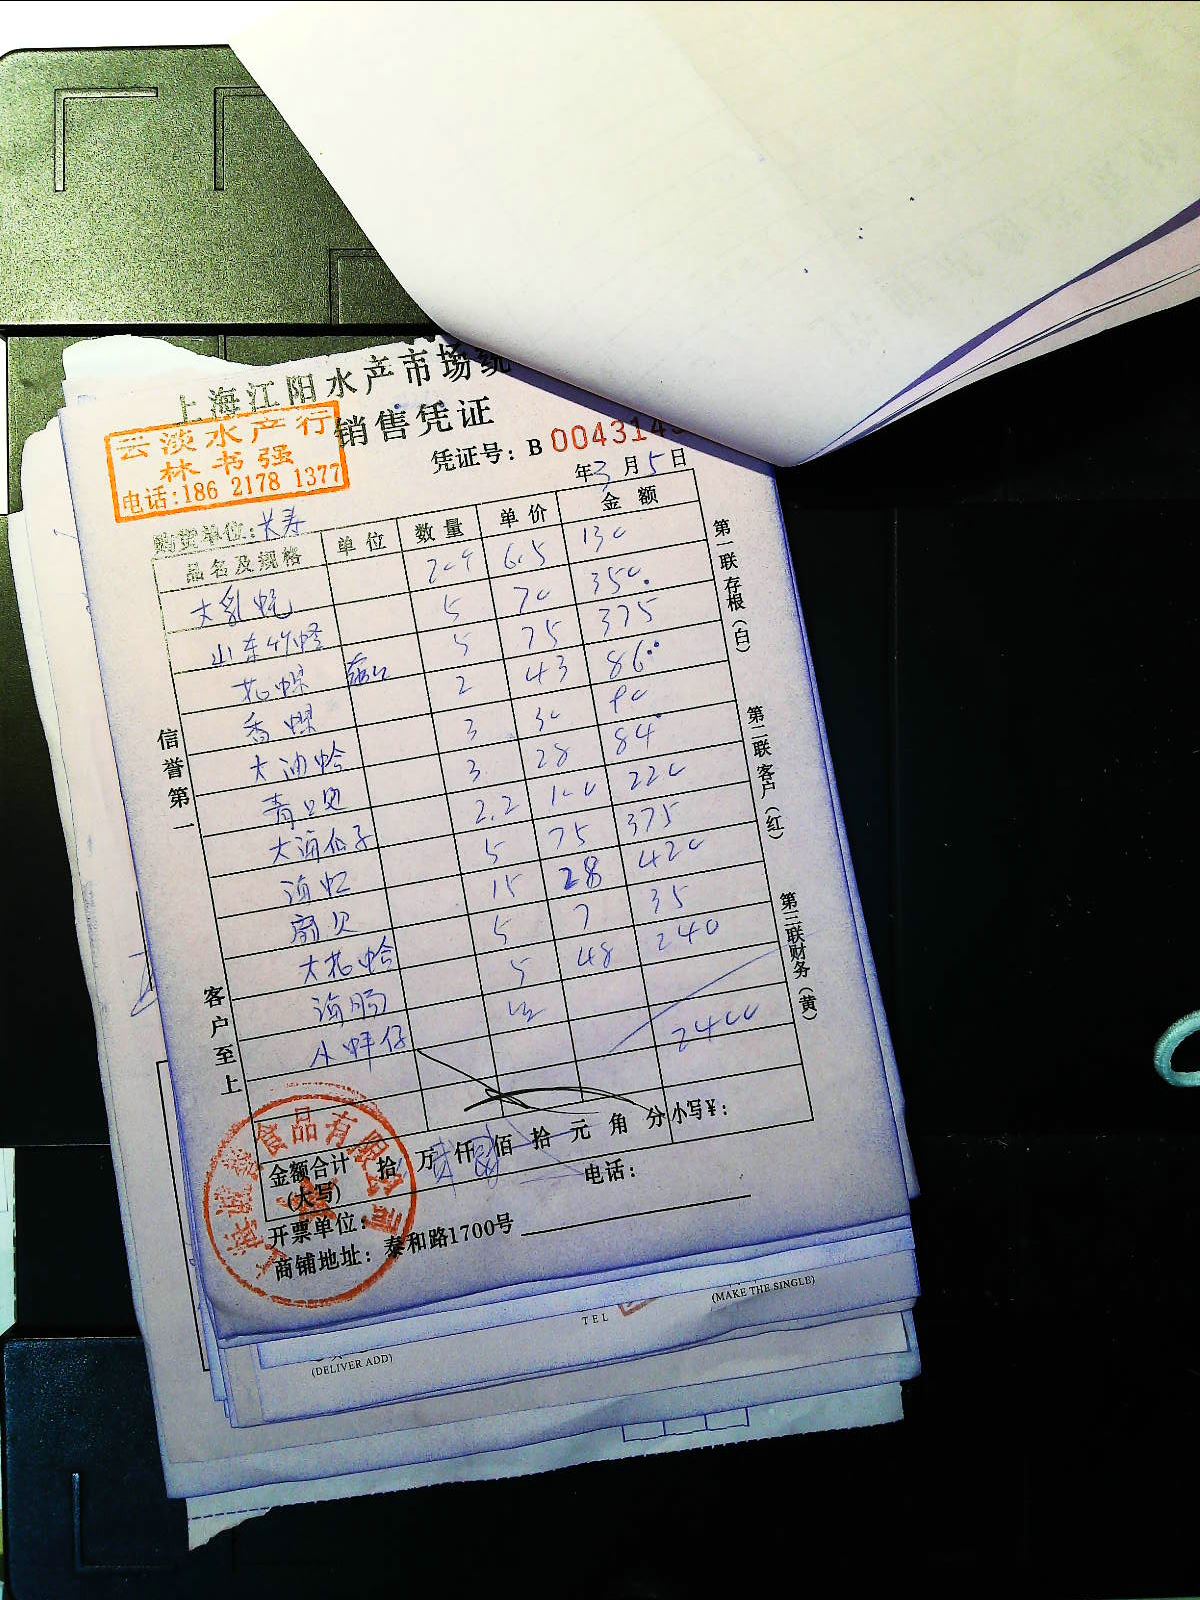 上海江阳水产市场统
销售凭证
云淡水产行
林书强
电话:186 2178 1377
凭证号: B 004314
年3月5日
购货单位:长寿
品名及规格 单位 数量 单价 金额
大乳蚝 6.5 130
山东竹蛏 5 70 350
花螺 5 75 375
香螺 2 43 86
大油蛤 3 30 90
青口贝 3 28 84
大海瓜子 2.2 100 220
海虹 5 75 375
扇贝 15 28 420
大花蛤 5 7 35
海肠 5 48 240
小蚌仔
2400
金额合计(大写) 拾 万 仟 佰 拾 元 角 分 小写¥:
开票单位: 电话:
商铺地址: 泰和路1700号
信誉第一
客户至上
第一联存根(白)
第二联客户(红)
第三联财务(黄)
食品有限公司
TEL
(MAKE THE SINGLE)
(DELIVER ADD)